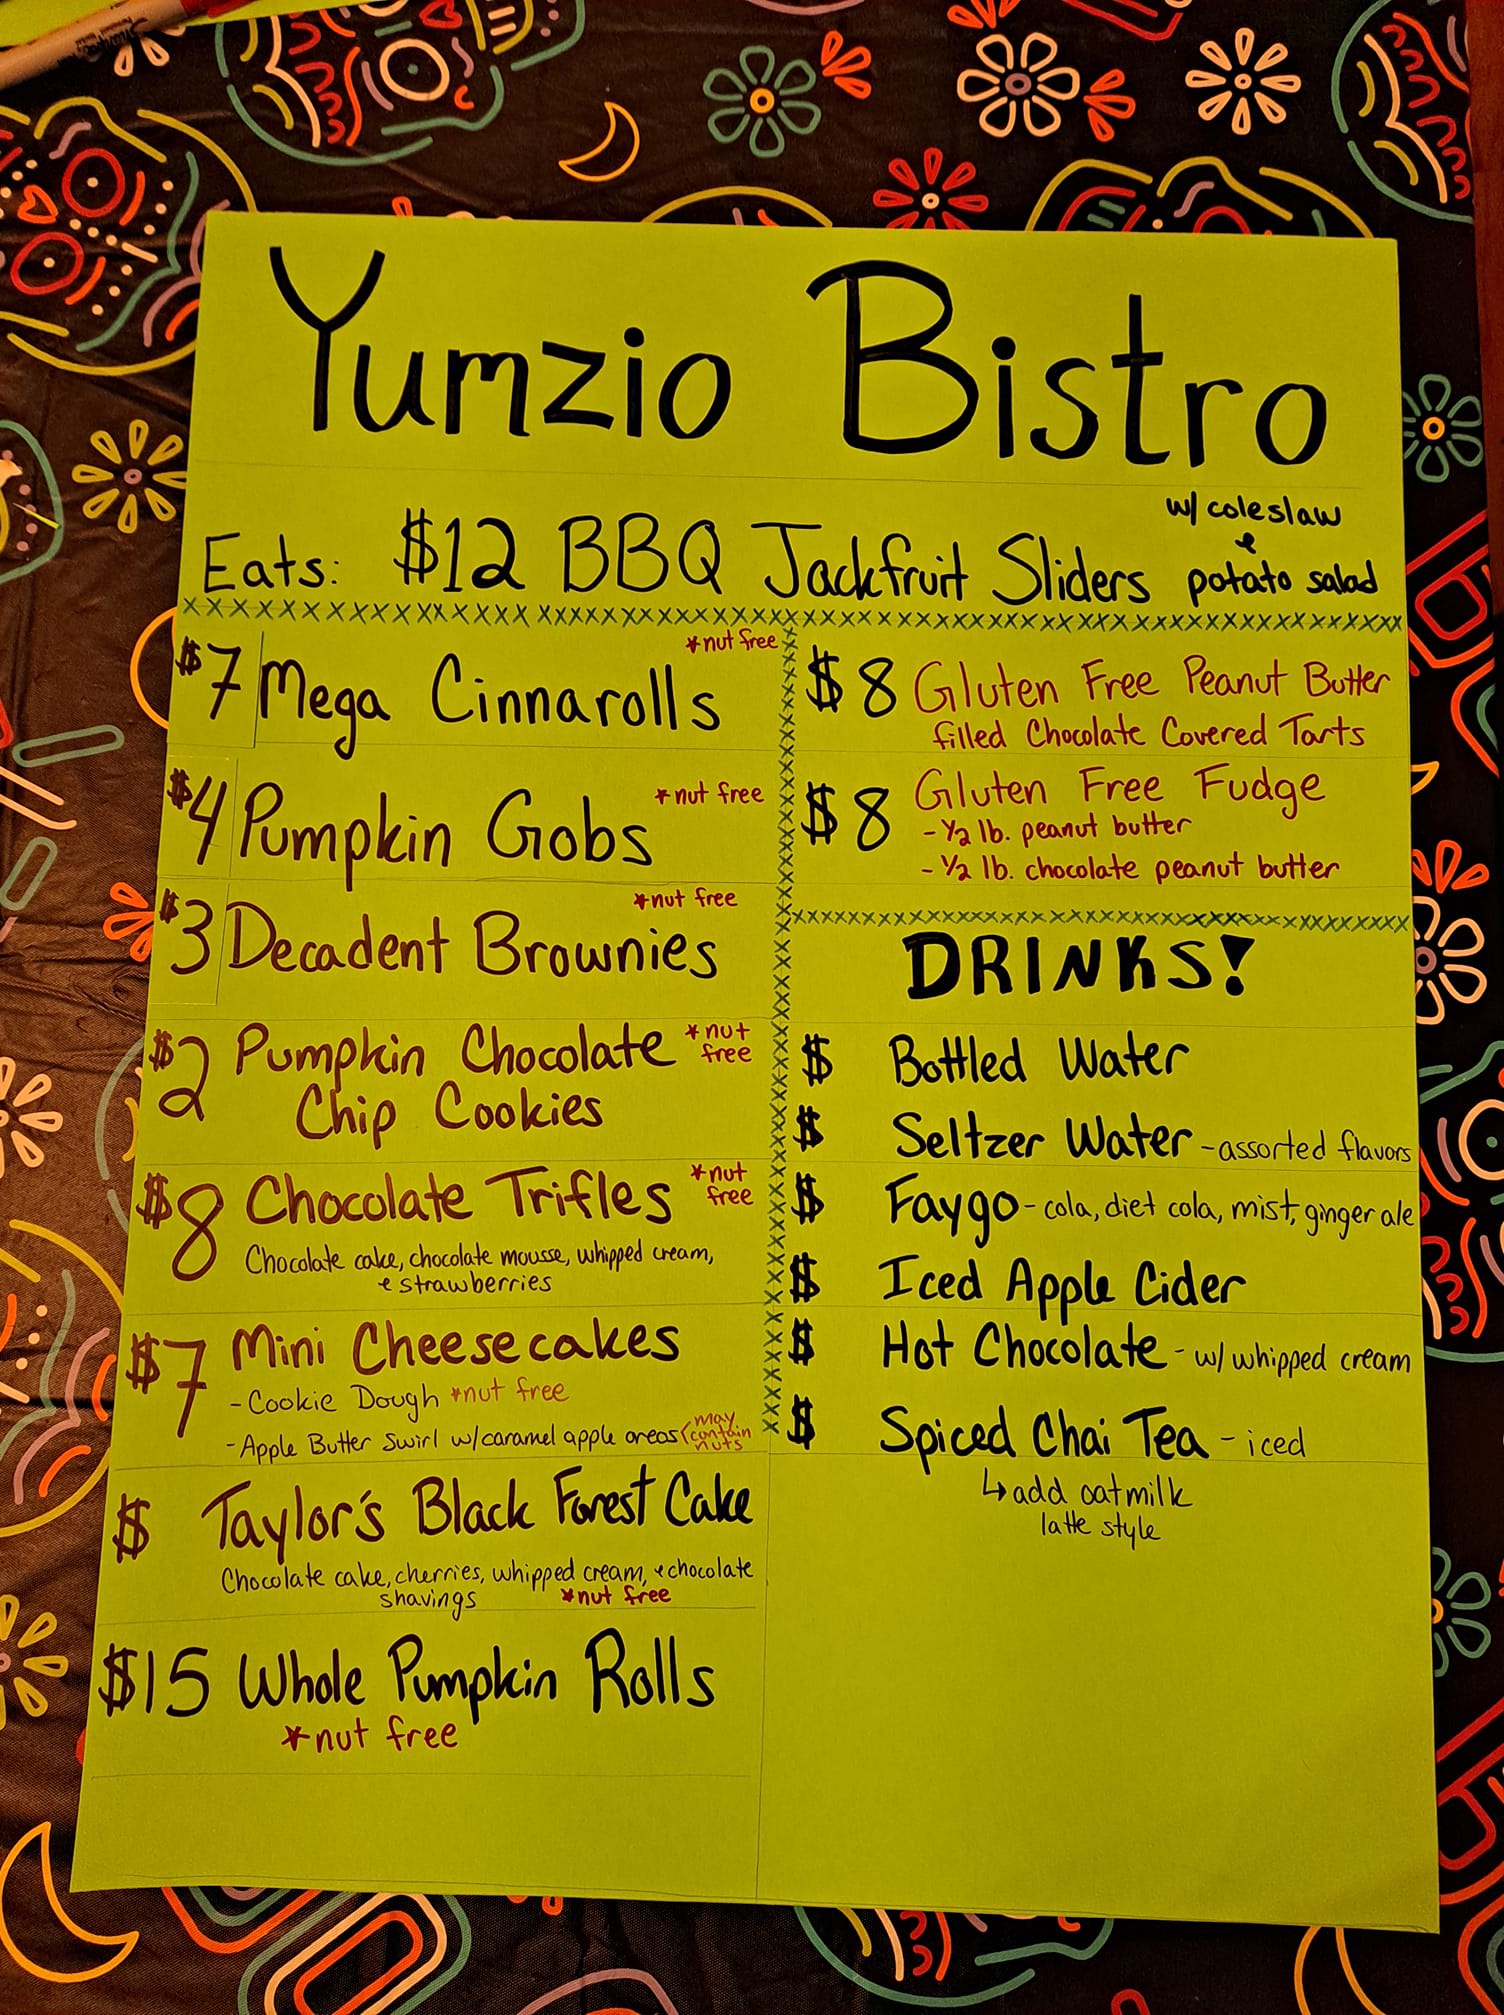 Yumzio Bistro
Eats: $12 BBQ Jackfruit Sliders w/ coleslaw
& potato salad
$7 Mega Cinnarolls *nut free
$4 Pumpkin Gobs *nut free
$3 Decadent Brownies *nut free
$2 Pumpkin Chocolate *nut free
Chip Cookies
$8 Chocolate Trifles *nut free
Chocolate cake, chocolate mousse, whipped cream,
& strawberries
$7 Mini Cheesecakes
- Cookie Dough *nut free
- Apple Butter Swirl w/caramel apple oreos (may contain nuts
$ Taylor's Black Forest Cake
Chocolate cake, cherries, whipped cream, & chocolate
shavings *nut free
$15 Whole Pumpkin Rolls
*nut free
$8 Gluten Free Peanut Butter
filled Chocolate Covered Tarts
$8 Gluten Free Fudge
- 1/2 lb. peanut butter
- 1/2 lb. chocolate peanut butter
DRINKS!
$ Bottled Water
$ Seltzer Water - assorted flavors
$ Faygo - cola, diet cola, mist, ginger ale
$ Iced Apple Cider
$ Hot Chocolate - w/ whipped cream
$ Spiced Chai Tea - iced
↳ add oatmilk
latte style